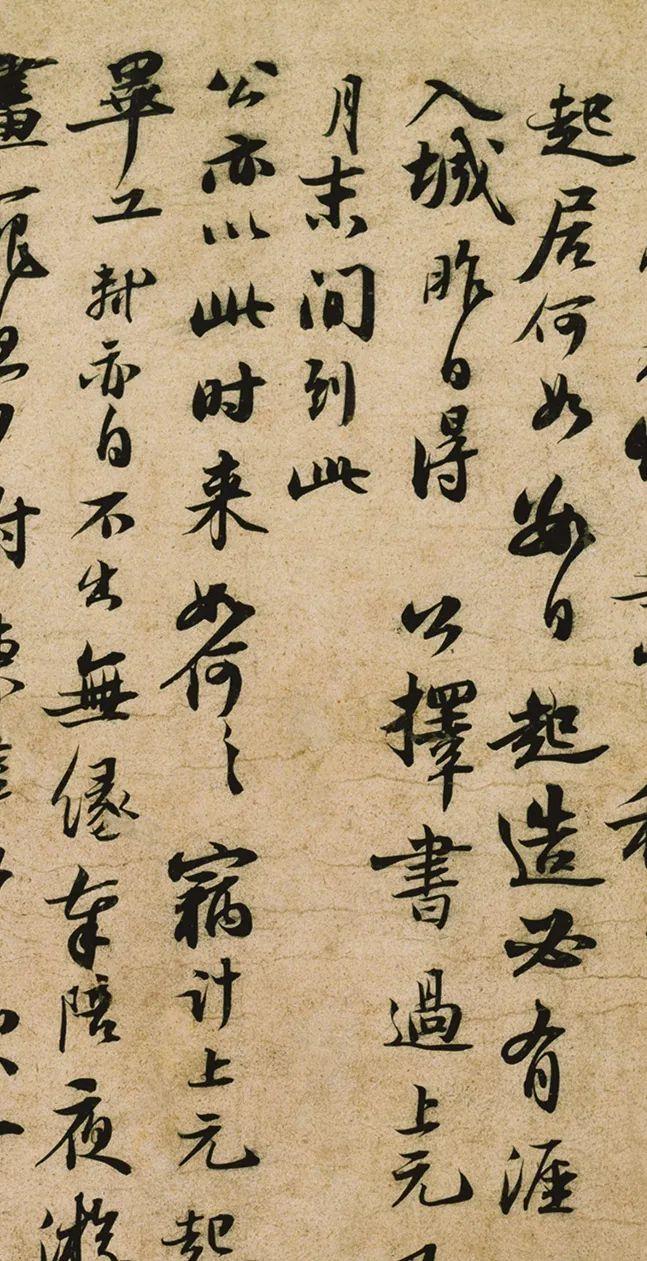 起居何如數日起造必有涯
入城昨日得 公擇書過上元
月末间到此
公亦以此时来如何〻竊計上元起
畢工軾亦自不出無緣奉陪夜游
畫